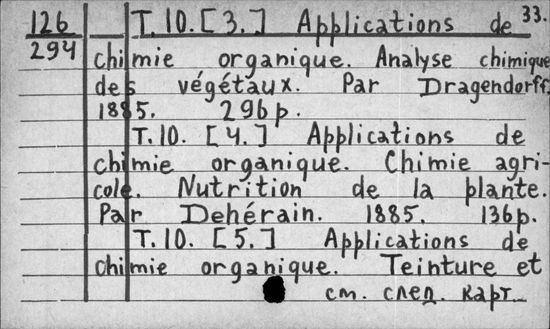 126 T.10. [3.] Applications de 33.
294 chimie organique. Analyse chimique
des végétaux. Par Dragendorff.
1885. 296p.
T.10. [4.] Applications de
chimie organique. Chimie agri-
cole. Nutrition de la plante.
Par Dehérain. 1885. 136p.
T.10. [5.] Applications de
chimie organique. Teinture et
см. след. карт.